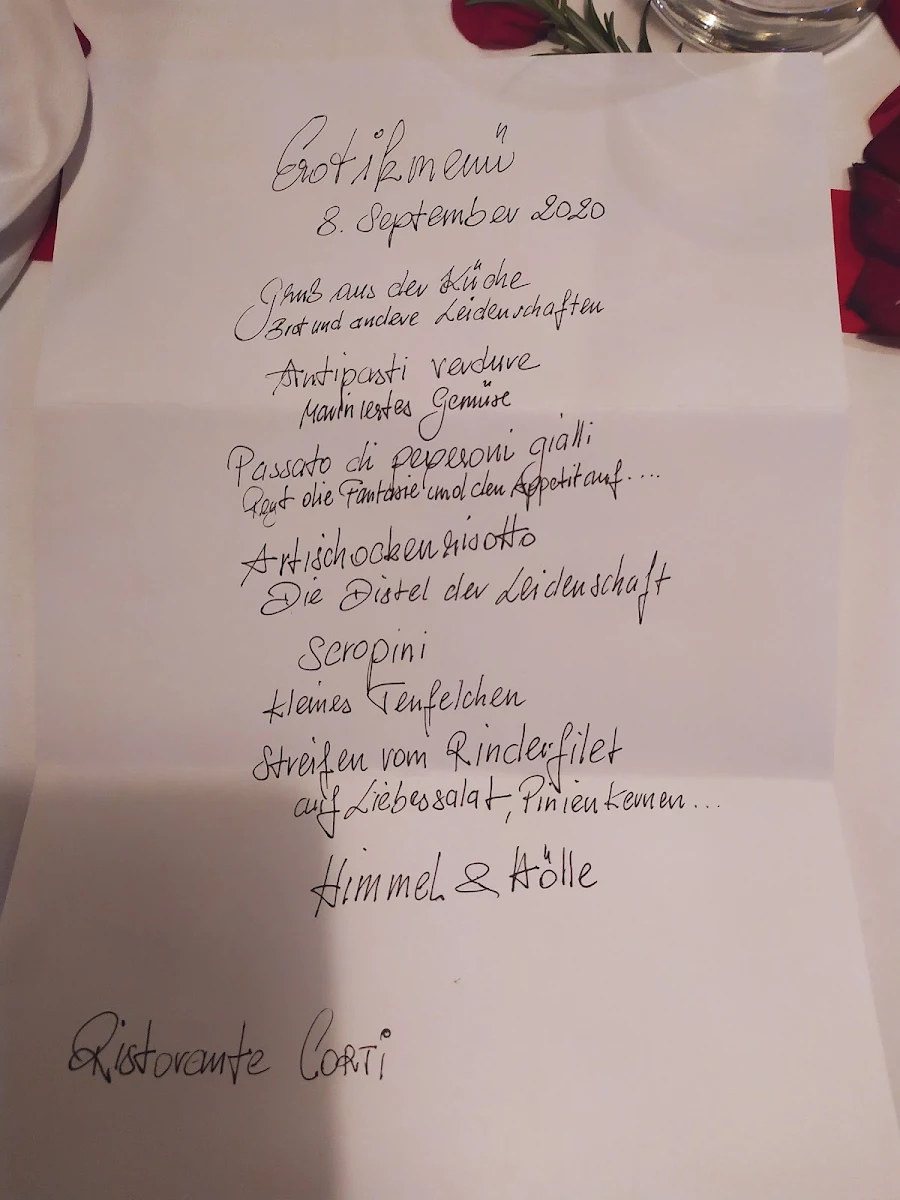 Erotikmenü
8. September 2020
Gruß aus der Küche
Brot und andere Leidenschaften
Antipasti verdure
Mariniertes Gemüse
Passato di peperoni gialli
Regt die Fantasie und den Appetit auf....
Artischockenrisotto
Die Distel der Leidenschaft
Scropini
kleines Teufelchen
Streifen vom Rinderfilet
auf Liebessalat, Pinienkernen...
Himmel & Hölle
Ristorante CORTi